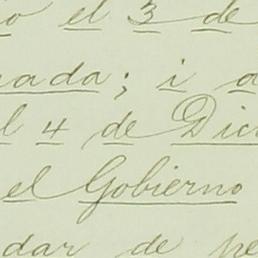 o el 3 de
nada; i a
l 4 de Dici
el Gobierno
dar de pe